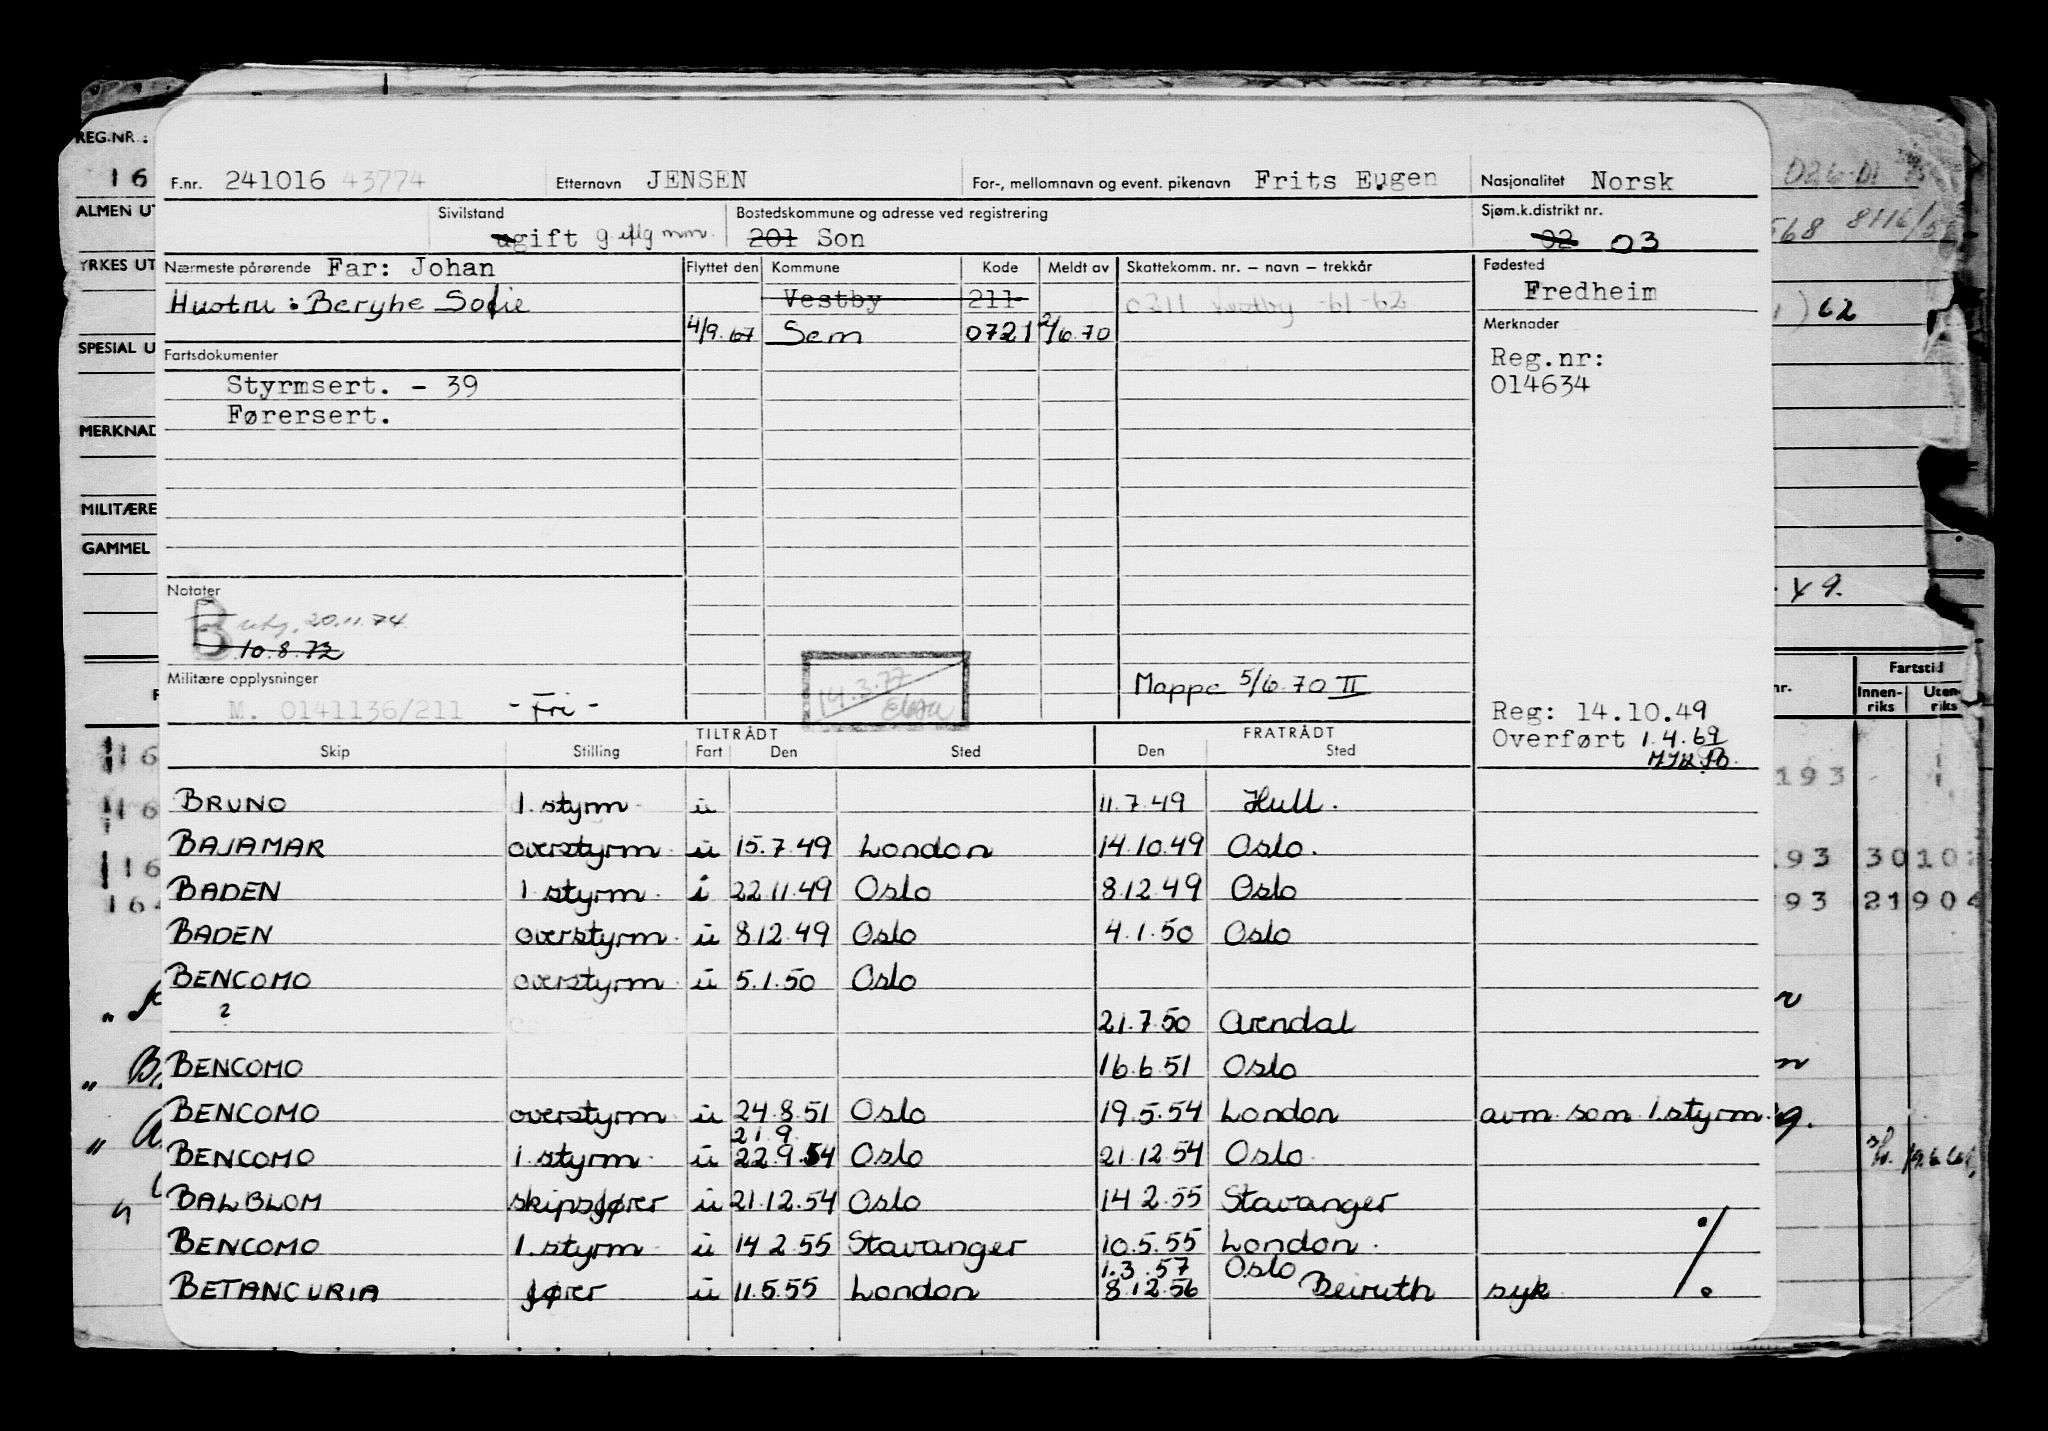 F.nr. 241016 43774 Etternavn JENSEN For-, mellomnavn og event. pikenavn Frits Eugen Nasjonalitet Norsk
Sivilstand Bostedskommune og adresse ved registrering Sjøm.k.distrikt nr.
ugift 201 Son 02 03
Nærmeste pårørende Far: Johan Flyttet den Kommune Kode Meldt av Skattekomm. nr. – navn – trekkår Fødested
Fredheim
Hustru: Berghe Sofie Vestby 211 0211 Vestby -61-62
4/9.67 Sem 0721 2/6.70 Merknader
Fartsdokumenter Reg.nr:
Styrmsert. - 39 014634
Førersert.
Notater
B 20.11.74
10.8.72
Militære opplysninger 14.3.77 Mappe 5/6.70 II
M. 0141136/211 - Fri - Reg: 14.10.49
Overført 1.4.69
TILTRÅDT FRATRÅDT
Skip Stilling Fart Den Sted Den Sted
BRUNO 1. styrm u 11.7.49 Hull.
BAJAMAR overstyrm. u 15.7.49 London 14.10.49 Oslo.
BADEN 1 styrm. i 22.11.49 Oslo 8.12.49 Oslo
BADEN overstyrm. u 8.12.49 Oslo 4.1.50 Oslo
BENCOMO overstyrm u 5.1.50 Oslo
? 21.7.50 Arendal
BENCOMO 16.6.51 Oslo
BENCOMO overstyrm u 24.8.51 Oslo 19.5.54 London avm. som 1.styrm.
21.9.
BENCOMO 1. styrm. u 22.9.54 Oslo 21.12.54 Oslo.
BALBLOM skipsfører u 21.12.54 Oslo 14 2.55 Stavanger
BENCOMO 1. styrm. u 14 2.55 Stavanger 10.5.55 London.
1.3.57 Oslo
BETANCURIA fører u 11.5.55 London 8.12.56 Beiruth syk ./.
REG.NR.:
16
ALMEN UT
YRKES UT
SPESIAL U
MERKNAD
MILITÆRE
GAMMEL
8116/
62
49.
Fartstid
nr. Innen-riks Uten-riks
193
93 30 10
93 21 904